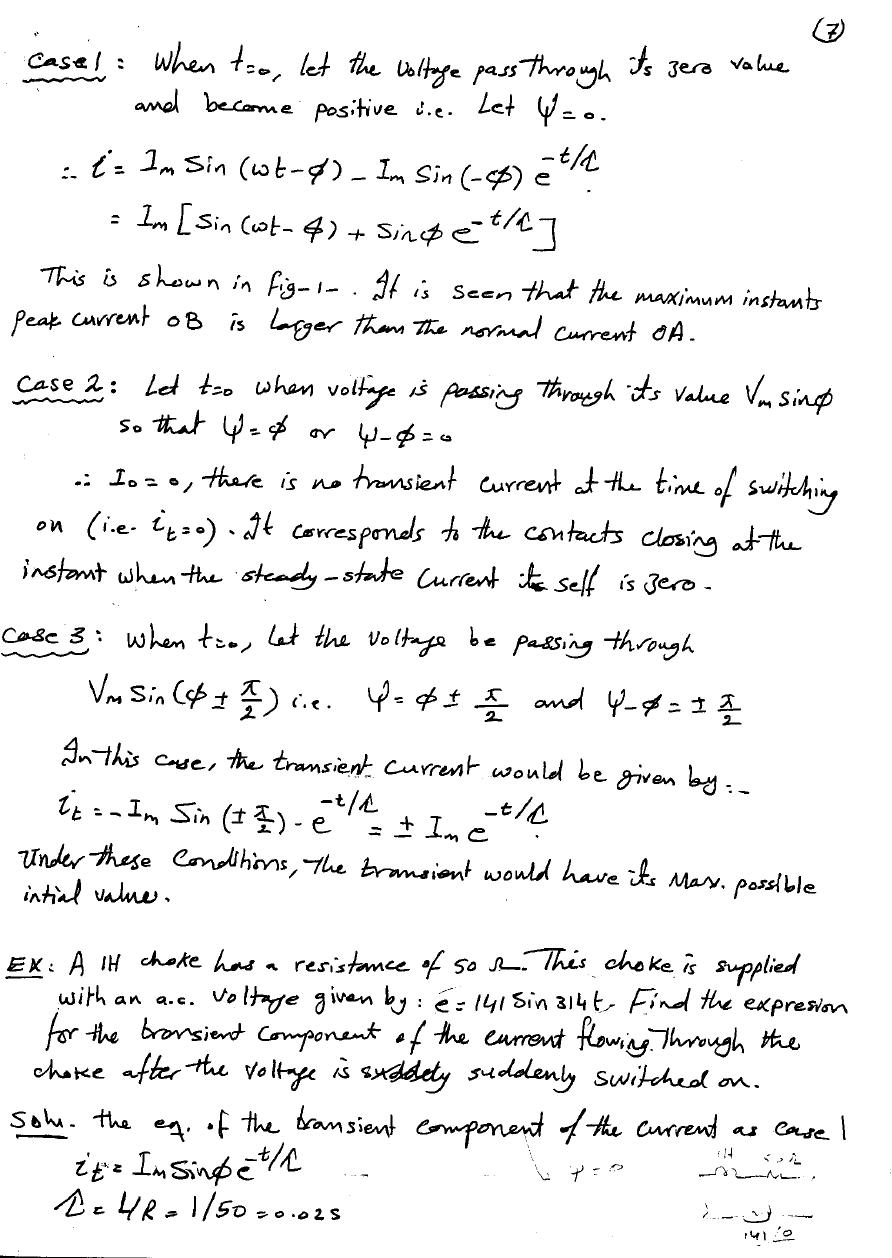 (7)
Case 1 : When t=0, let the Voltage pass through its zero value
and become positive i.e. Let Ψ=0.
∴ i = Im Sin (ωt-φ) - Im Sin (-φ) e^-t/λ
= Im [Sin (ωt-φ) + Sinφ e^-t/λ]
This is shown in fig-1- . It is seen that the maximum instants
Peak current OB is larger than the normal current OA.
Case 2 : Let t=0 when voltage is passing through its value Vm Sinφ
so that Ψ=φ or Ψ-φ=0
∴ I0=0, there is no transient current at the time of switching
on (i.e. it=0). It corresponds to the contacts closing at the
instant when the steady-state current its self is zero.
Case 3 : when t=0, Let the voltage be passing through
Vm Sin (φ ± π/2) i.e. Ψ = φ ± π/2 and Ψ-φ = ± π/2
In this case, the transient current would be given by :-
it = - Im Sin (± π/2) . e^-t/λ = ± Im e^-t/λ.
Under these Conditions, The transient would have its Max. possible
intial value.
EX : A 1H choke has a resistance of 50 Ω. This choke is supplied
with an a.c. voltage given by : e = 141 Sin 314t. Find the expresion
for the transient component of the current flowing Through the
choke after the voltage is suddenly switched on.
Solu. the eq. of the transient component of the current as case 1
it = Im Sinφ e^-t/λ
Ψ = 0
1H 50Ω
λ = L/R = 1/50 = 0.02S
141 /0